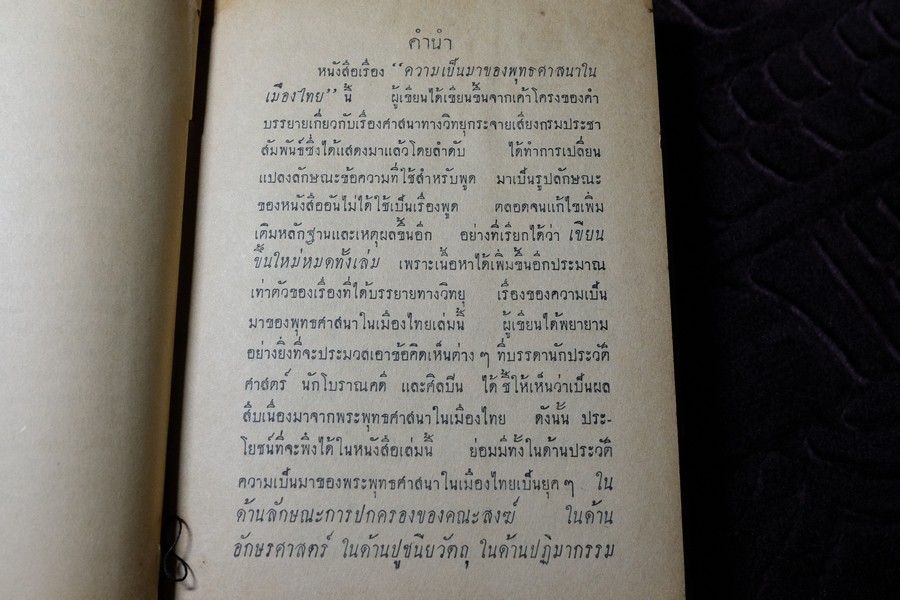 คำนำ
หนังสือเรื่อง “ความเป็นมาของพุทธศาสนาใน
เมืองไทย” นี้ ผู้เขียนได้เขียนขึ้นจากเค้าโครงของคำ
บรรยายเกี่ยวกับเรื่องศาสนาทางวิทยุกระจายเสียงกรมประชา
สัมพันธ์ซึ่งได้แสดงมาแล้วโดยลำดับ ได้ทำการเปลี่ยน
แปลงลักษณะข้อความที่ใช้สำหรับพูด มาเป็นรูปลักษณะ
ของหนังสืออันไม่ได้ใช้เป็นเรื่องพูด ตลอดจนแก้ไขเพิ่ม
เติมหลักฐานและเหตุผลขึ้นอีก อย่างที่เรียกได้ว่า เขียน
ขึ้นใหม่หมดทั้งเล่ม เพราะเนื้อหาได้เพิ่มขึ้นอีกประมาณ
เท่าตัวของเรื่องที่ได้บรรยายทางวิทยุ เรื่องของความเป็น
มาของพุทธศาสนาในเมืองไทยเล่มนี้ ผู้เขียนได้พยายาม
อย่างยิ่งที่จะประมวลเอาข้อคิดเห็นต่าง ๆ ที่บรรดานักประวัติ
ศาสตร์ นักโบราณคดี และศิลปิน ได้ ชี้ให้เห็นว่าเป็นผล
สืบเนื่องมาจากพระพุทธศาสนาในเมืองไทย ดังนั้น ประ-
โยชน์ที่จะพึงได้ในหนังสือเล่มนี้ ย่อมมีทั้งในด้านประวัติ
ความเป็นมาของพระพุทธศาสนาในเมืองไทยเป็นยุค ๆ ใน
ด้านลักษณะการปกครองของคณะสงฆ์ ในด้าน
อักษรศาสตร์ ในด้านปูชนียวัตถุ ในด้านปฏิมากรรม